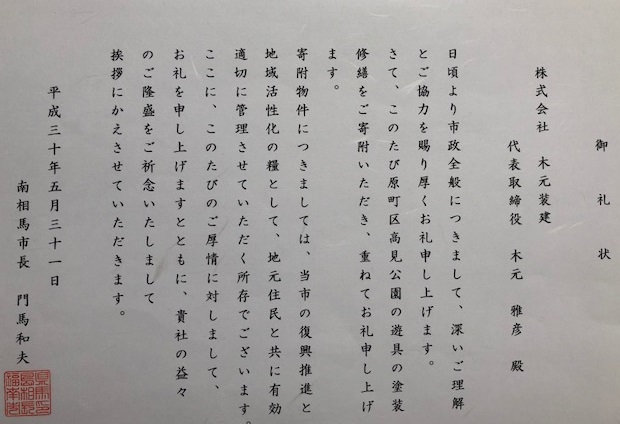 御礼状
株式会社 木元装建
代表取締役 木元 雅彦 殿
日頃より市政全般につきまして、深いご理解
とご協力を賜り厚くお礼申し上げます。
さて、このたび原町区高見公園の遊具の塗装
修繕をご寄附いただき、重ねてお礼申し上げ
ます。
寄附物件につきましては、当市の復興推進と
地域活性化の糧として、地元住民と共に有効
適切に管理させていただく所存でございます。
ここに、このたびのご厚情に対しまして、
お礼を申し上げますとともに、貴社の益々
のご隆盛をご祈念いたしまして
挨拶にかえさせていただきます。
平成三十年五月三十一日
南相馬市長 門馬和夫